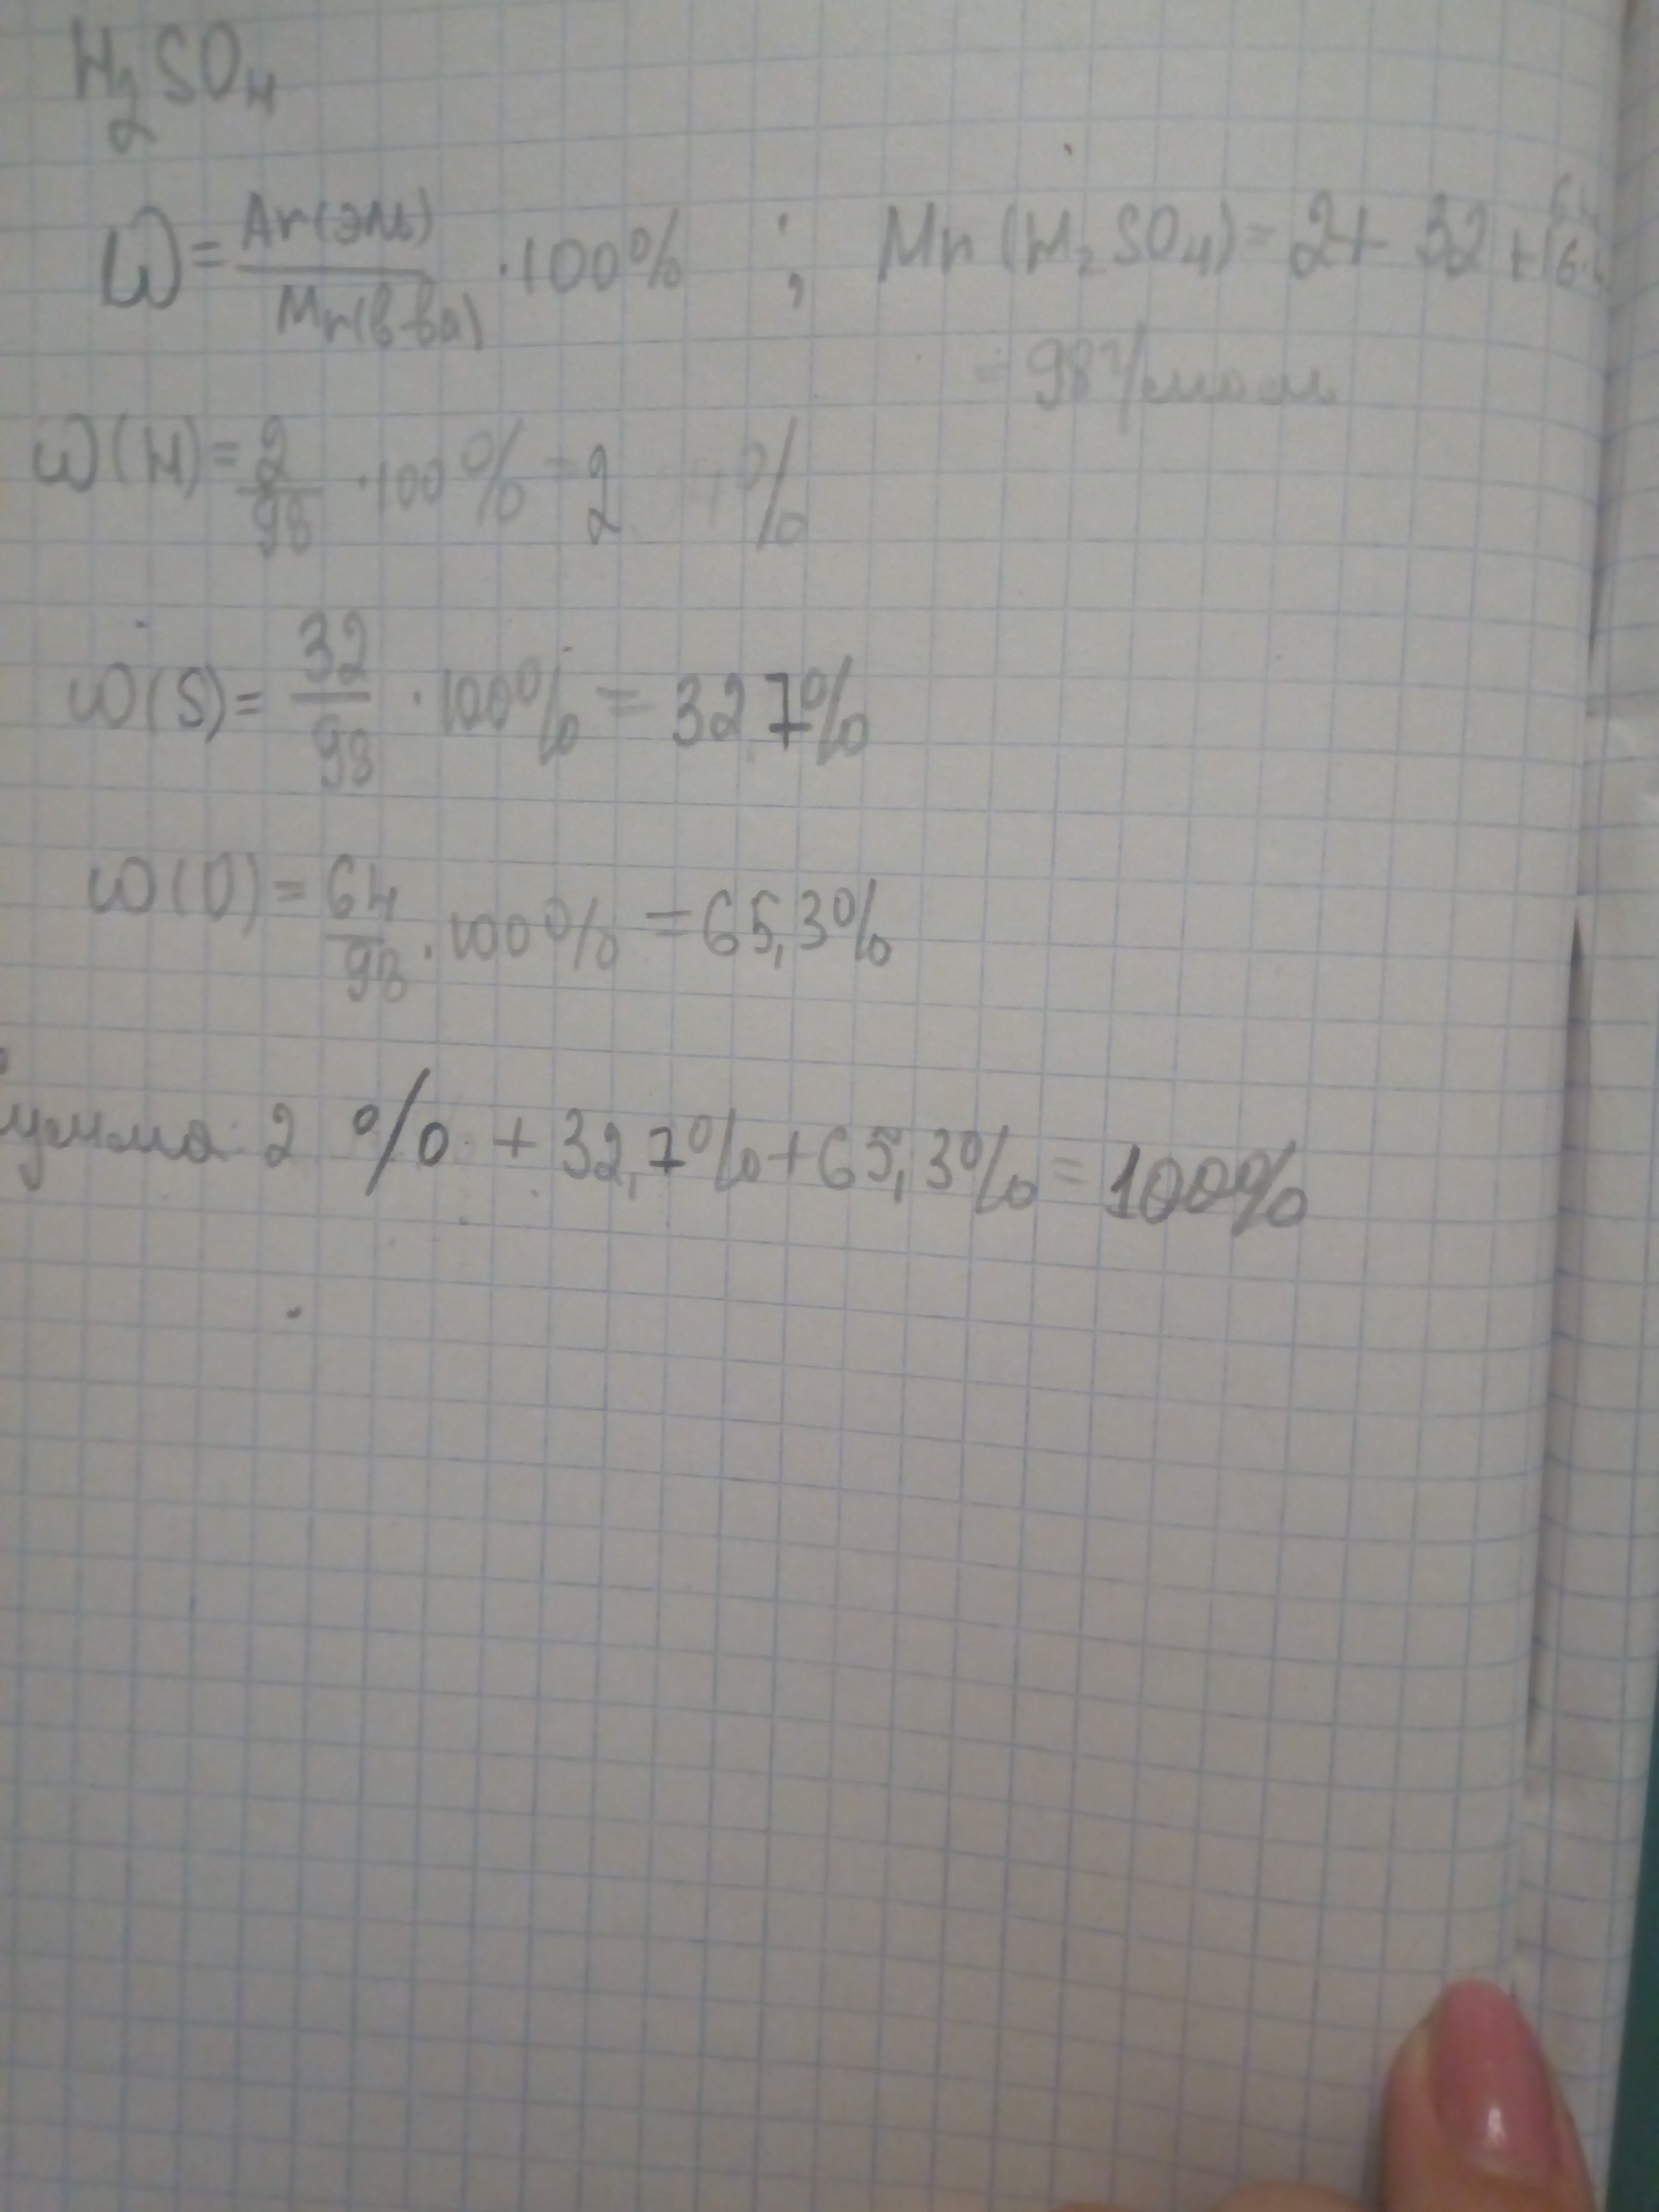 H₂SO₄
ω = Ar(эль) / Mr(в-ва) · 100% ; Mr (H₂SO₄) = 2 + 32 + 16·
= 98 г/моль
ω(H) = 2/98 · 100% = 2 %
ω(S) = 32/98 · 100% = 32,7%
ω(O) = 64/98 · 100% = 65,3%
умма 2 % + 32,7% + 65,3% = 100%